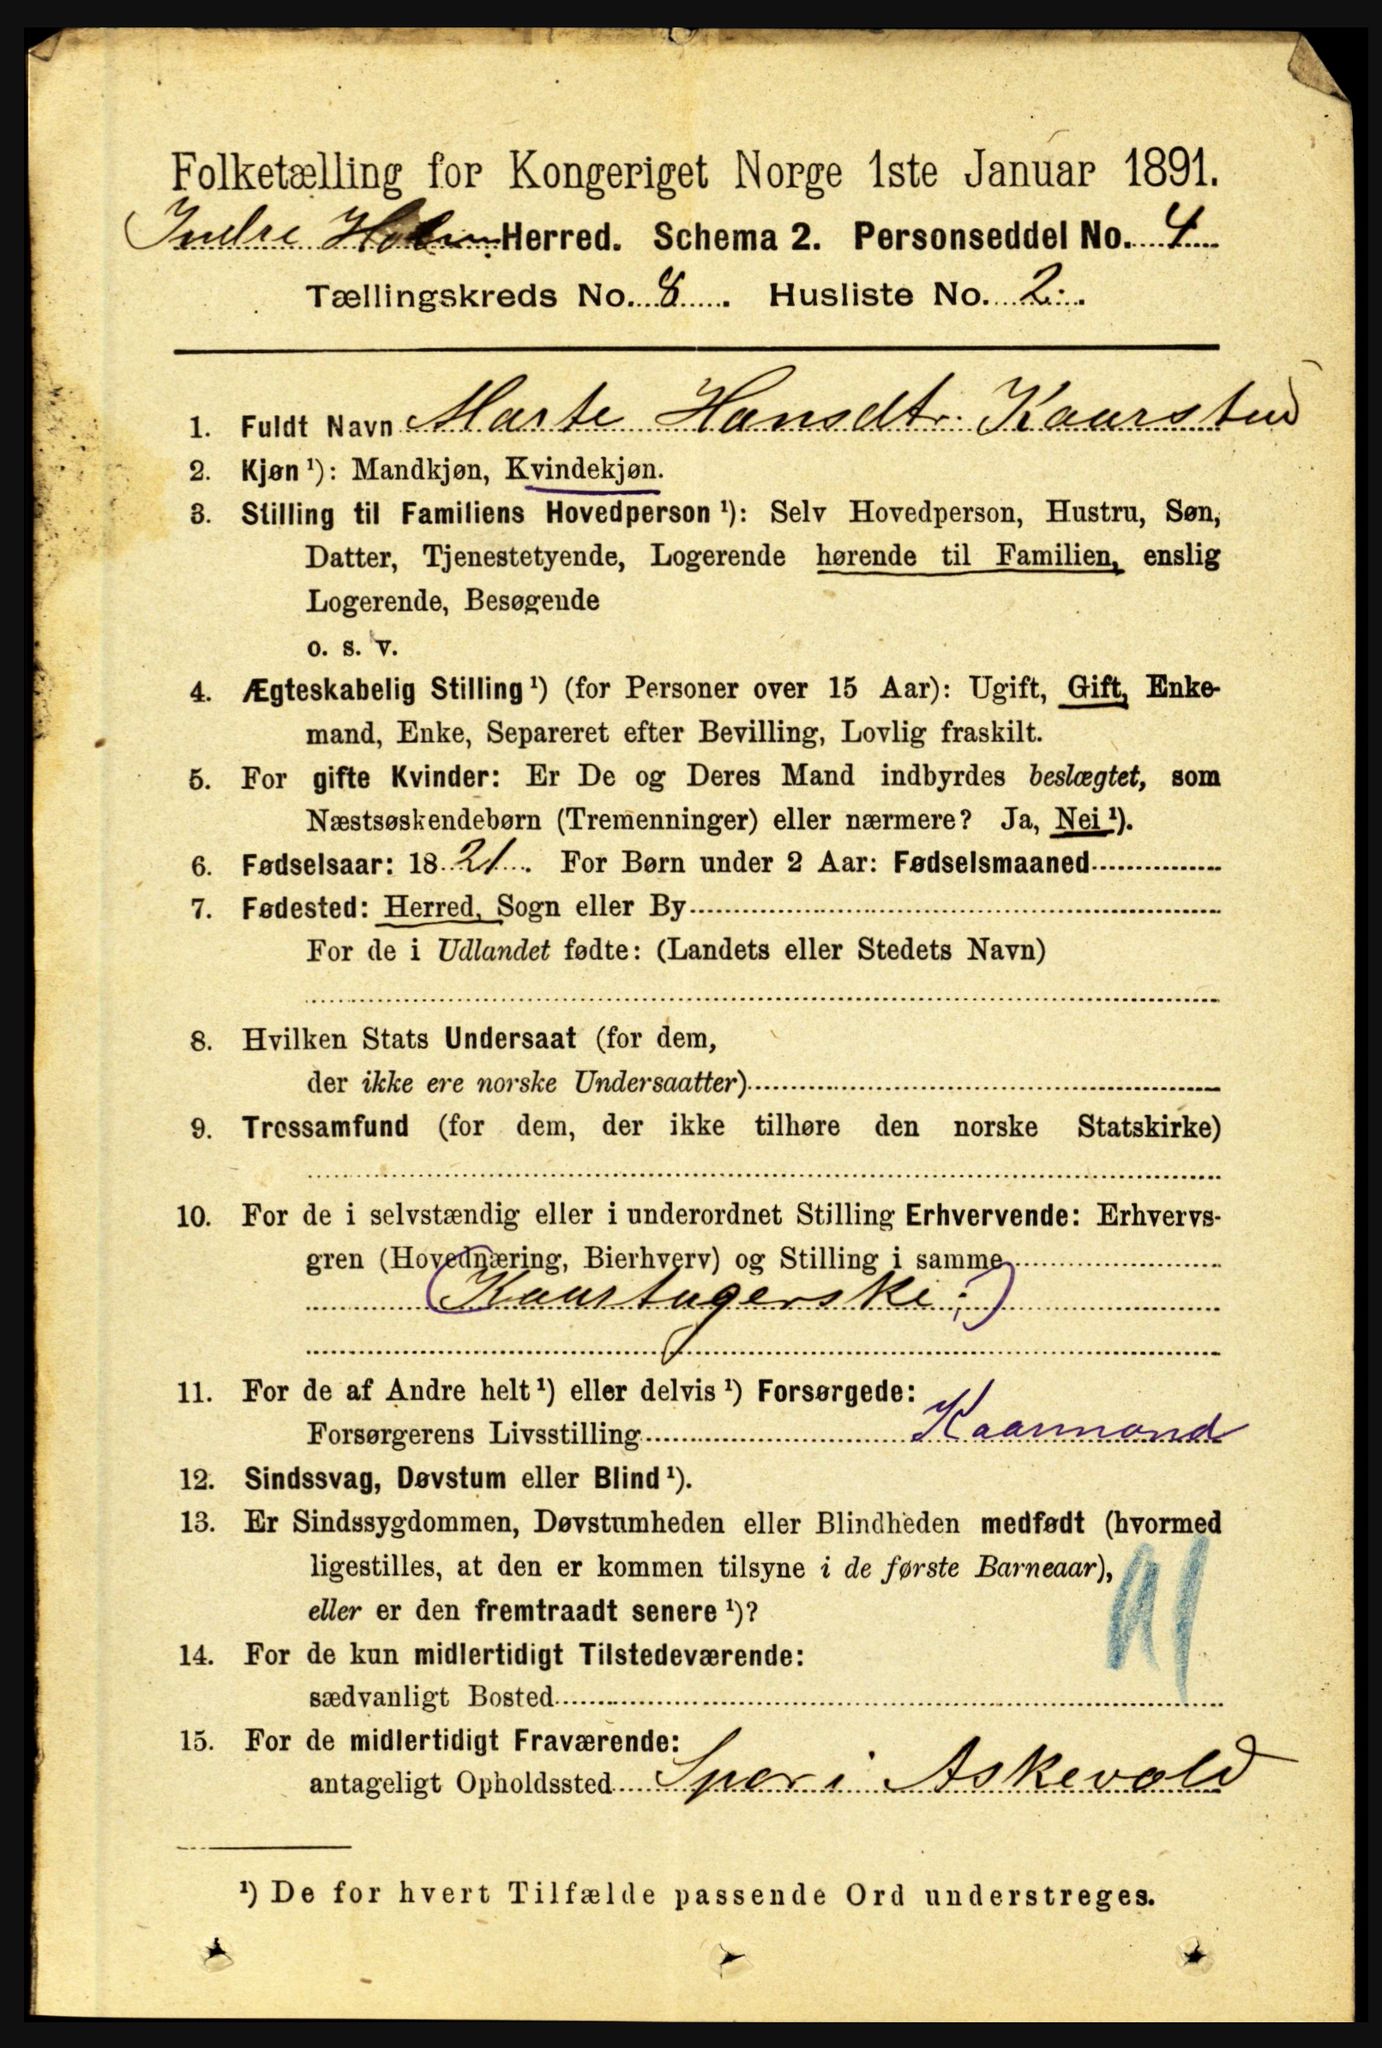 Folketælling for Kongeriget Norge 1ste Januar 1891.
Indre Holm Herred. Schema 2. Personseddel No. 4
Tællingskreds No. 8. Husliste No. 2.
1. Fuldt Navn Marte Hansdtr. Kaarstad
2. Kjøn ¹): Mandkjøn, Kvindekjøn.
3. Stilling til Familiens Hovedperson ¹): Selv Hovedperson, Hustru, Søn,
Datter, Tjenestetyende, Logerende hørende til Familien, enslig
Logerende, Besøgende
o. s. v.
4. Ægteskabelig Stilling ¹) (for Personer over 15 Aar): Ugift, Gift, Enke-
mand, Enke, Separeret efter Bevilling, Lovlig fraskilt.
5. For gifte Kvinder: Er De og Deres Mand indbyrdes beslægtet, som
Næstsøskendebørn (Tremenninger) eller nærmere? Ja, Nei ¹).
6. Fødselsaar: 1821. For Børn under 2 Aar: Fødselsmaaned
7. Fødested: Herred, Sogn eller By
For de i Udlandet fødte: (Landets eller Stedets Navn)
8. Hvilken Stats Undersaat (for dem,
der ikke ere norske Undersaatter)
9. Trossamfund (for dem, der ikke tilhøre den norske Statskirke)
10. For de i selvstændig eller i underordnet Stilling Erhvervende: Erhvervs-
gren (Hovednæring, Bierhverv) og Stilling i samme
(Kaartagerske;)
11. For de af Andre helt ¹) eller delvis ¹) Forsørgede:
Forsørgerens Livsstilling Kaarmand
12. Sindssvag, Døvstum eller Blind ¹).
13. Er Sindssygdommen, Døvstumheden eller Blindheden medfødt (hvormed
ligestilles, at den er kommen tilsyne i de første Barneaar),
eller er den fremtraadt senere ¹)?
14. For de kun midlertidigt Tilstedeværende:
sædvanligt Bosted
15. For de midlertidigt Fraværende:
antageligt Opholdssted i Askevold
¹) De for hvert Tilfælde passende Ord understreges.